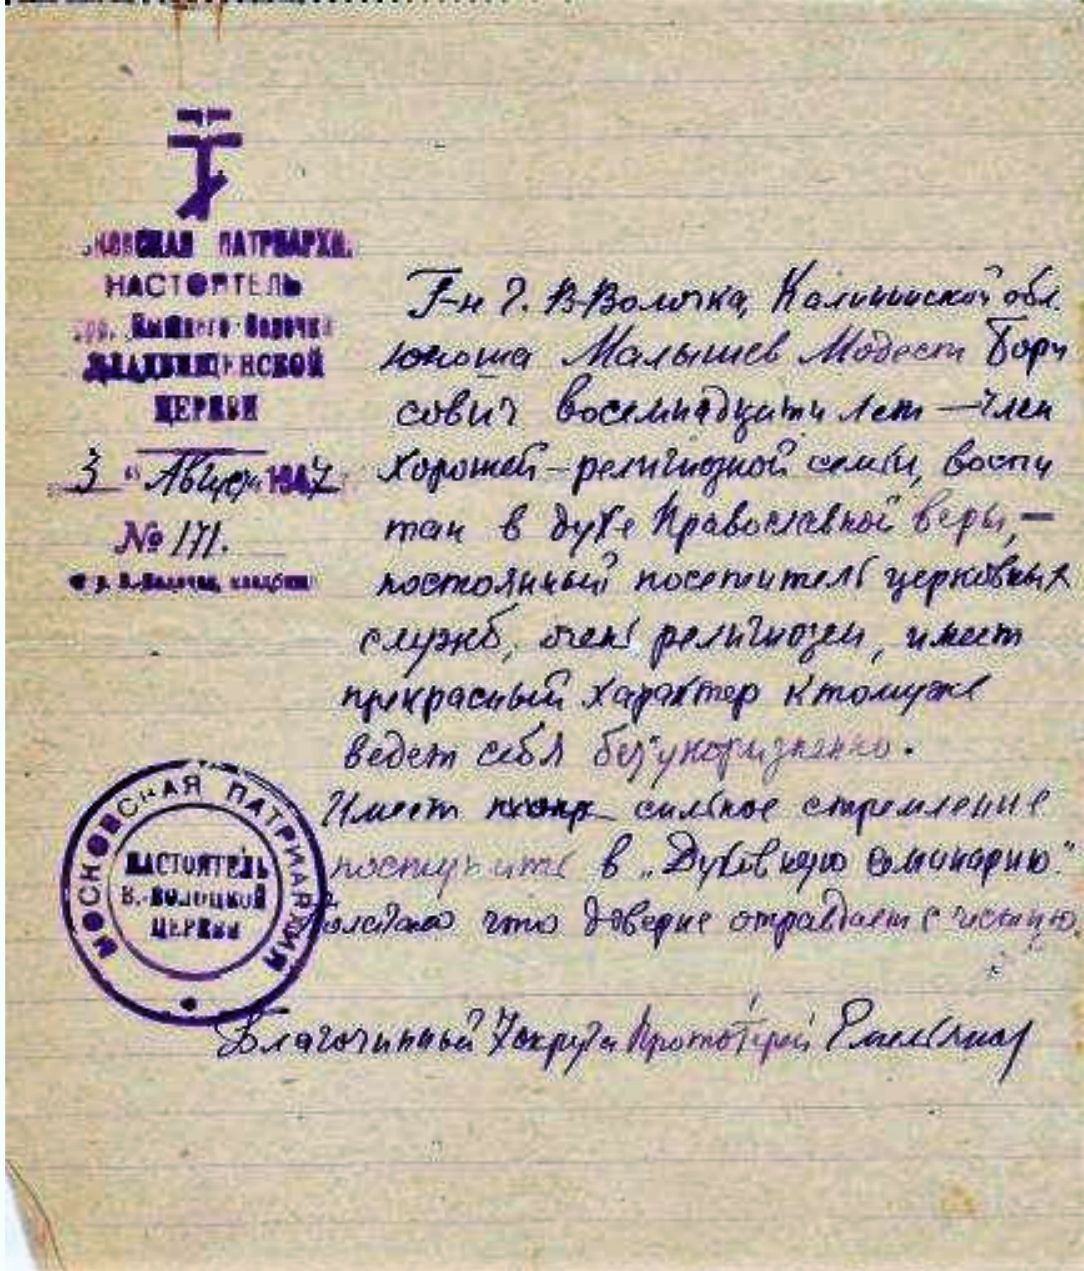 МОСКОВСКАЯ ПАТРИАРХИ.
НАСТОЯТЕЛЬ
гор. Вышнего-Волочка
КЛАДБИЩЕНСКОЙ
ЦЕРКВИ
3 " Август 1947
№ 171.
г. В.-Волочек, кладбище
Г-н г. В-Волочка, Калининской обл.
юноша Малышев Модест Бори
сович восемнадцати лет — член
хорошей – религиозной семьи, воспи
тан в духе Православной веры, –
постоянный посетитель церковных
служб, очень религиозен, имеет
прекрасный характер к томуже
ведет себя без"укоризненно.
Имеет сильное стремление
поступить в „Духовную семинарию."
что доверие оправдает с честию.
МОСКОВСКАЯ ПАТРИАРХИЯ
НАСТОЯТЕЛЬ
В.-ВОЛОЦКОЙ
ЦЕРКВИ
Благочинный округа Протоіерей